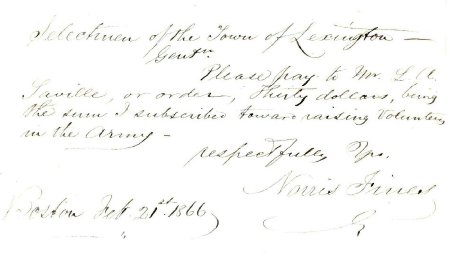 Selectmen of the Town of Lexington —
Gentn
Please pay to Mr. L. A.
Saville, or order, Thirty dollars, being
the sum I subscribed toward raising Volunteers
in the Army —
respectfully Yrs.
Norris
Boston Feb. 21st. 1866